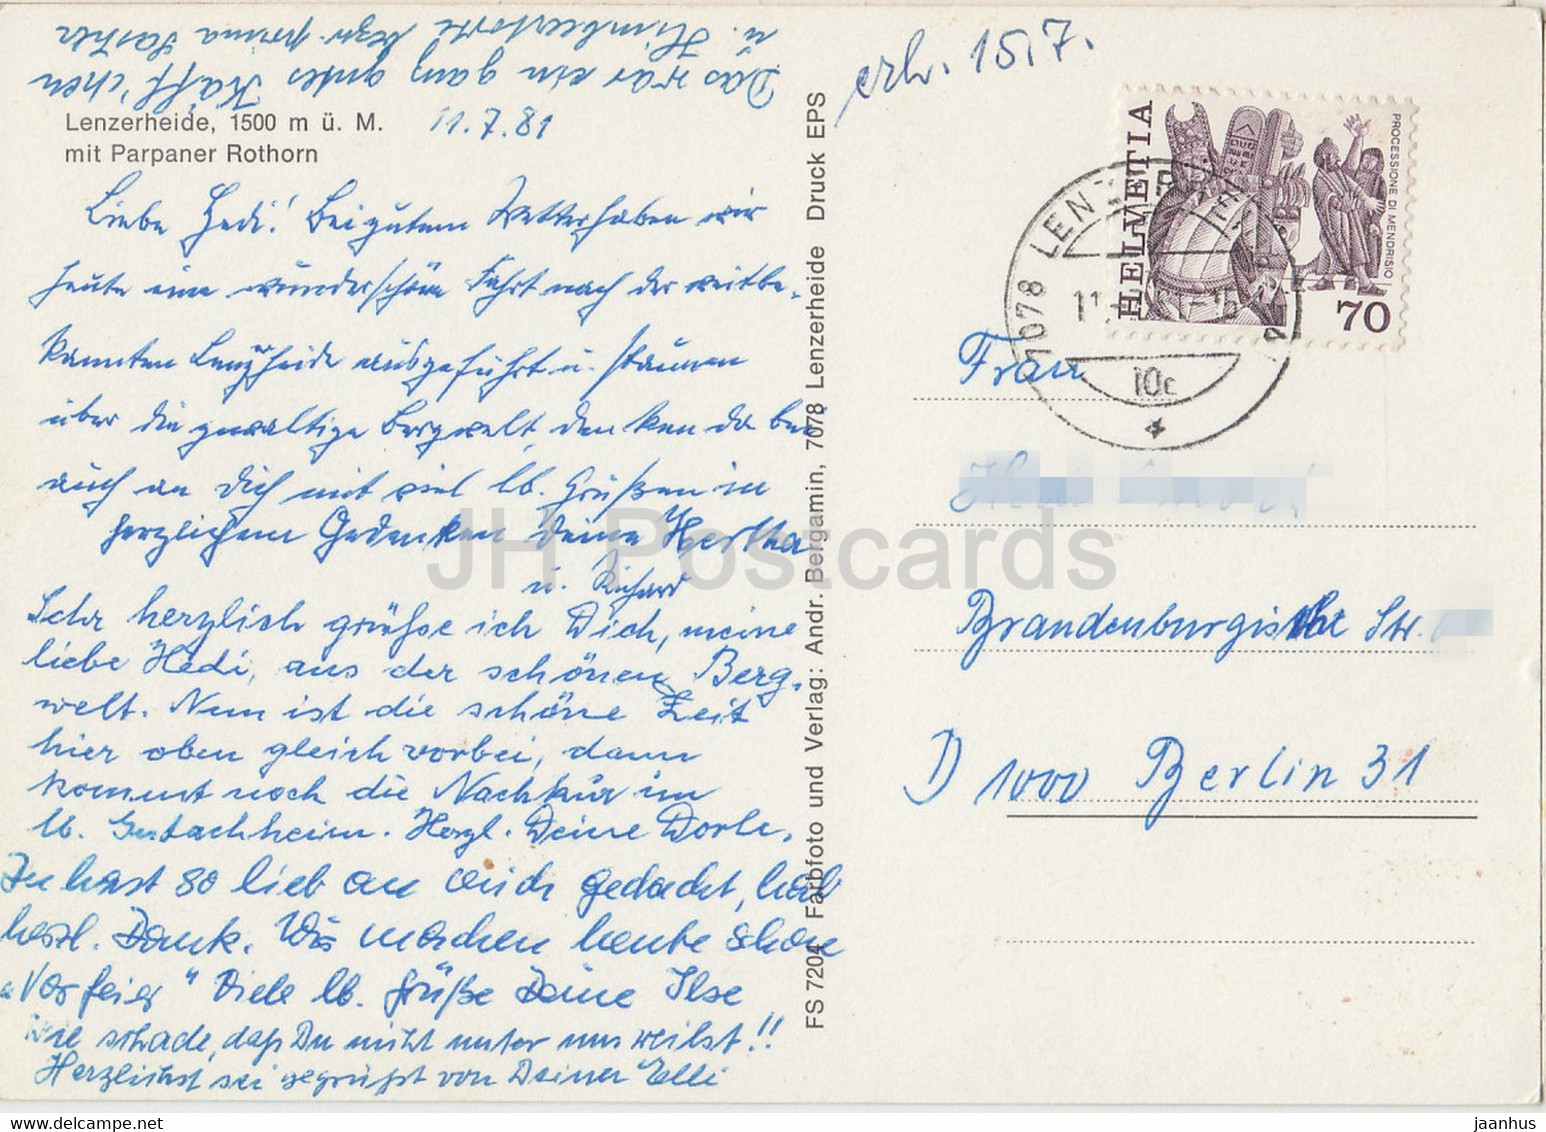 Das war ein ganz gutes Kaff'chen
u. Himbeertorte bezw. prima
Lenzerheide, 1500 m ü. M. 11.7.81
mit Parpaner Rothorn
Liebe Hedi! Bei gutem Wetter haben wir
heute eine wunderschöne Fahrt nach der weitbe-
kannten Lenzheide ausgeführt u. staunen
über die gewaltige Bergwelt, denken da bei
auch an Dich mit viel lb. Grüßen in
herzlichem Gedenken Deine Hertha
u. Richard
Sehr herzlich grüße ich Dich, meine
liebe Hedi, aus der schönen Berg-
welt. Nun ist die schöne Zeit
hier oben gleich vorbei, dann
kommt noch die Nachkur im
lb. Gutachheim. Herzl. Deine Dorle.
Du hast so lieb an mich gedacht, hab
herzl. Dank. Wir machen heute schon
"Vorfeier" Viele lb. Grüße Deine Ilse
Wie schade, daß Du nicht unter uns weilst!!
Herzlichst sei gegrüßt von Deiner Elli
FS 7204 Farbfoto und Verlag: Andr. Bergamin, 7078 Lenzerheide Druck EPS
erh. 15.7.
HELVETIA
PROCESSIONE DI MENDRISIO
70
7078 LENZERHEIDE
10c
Frau
Brandenburgische Str.
D 1000 Berlin 31
JH Postcards
jaanhus